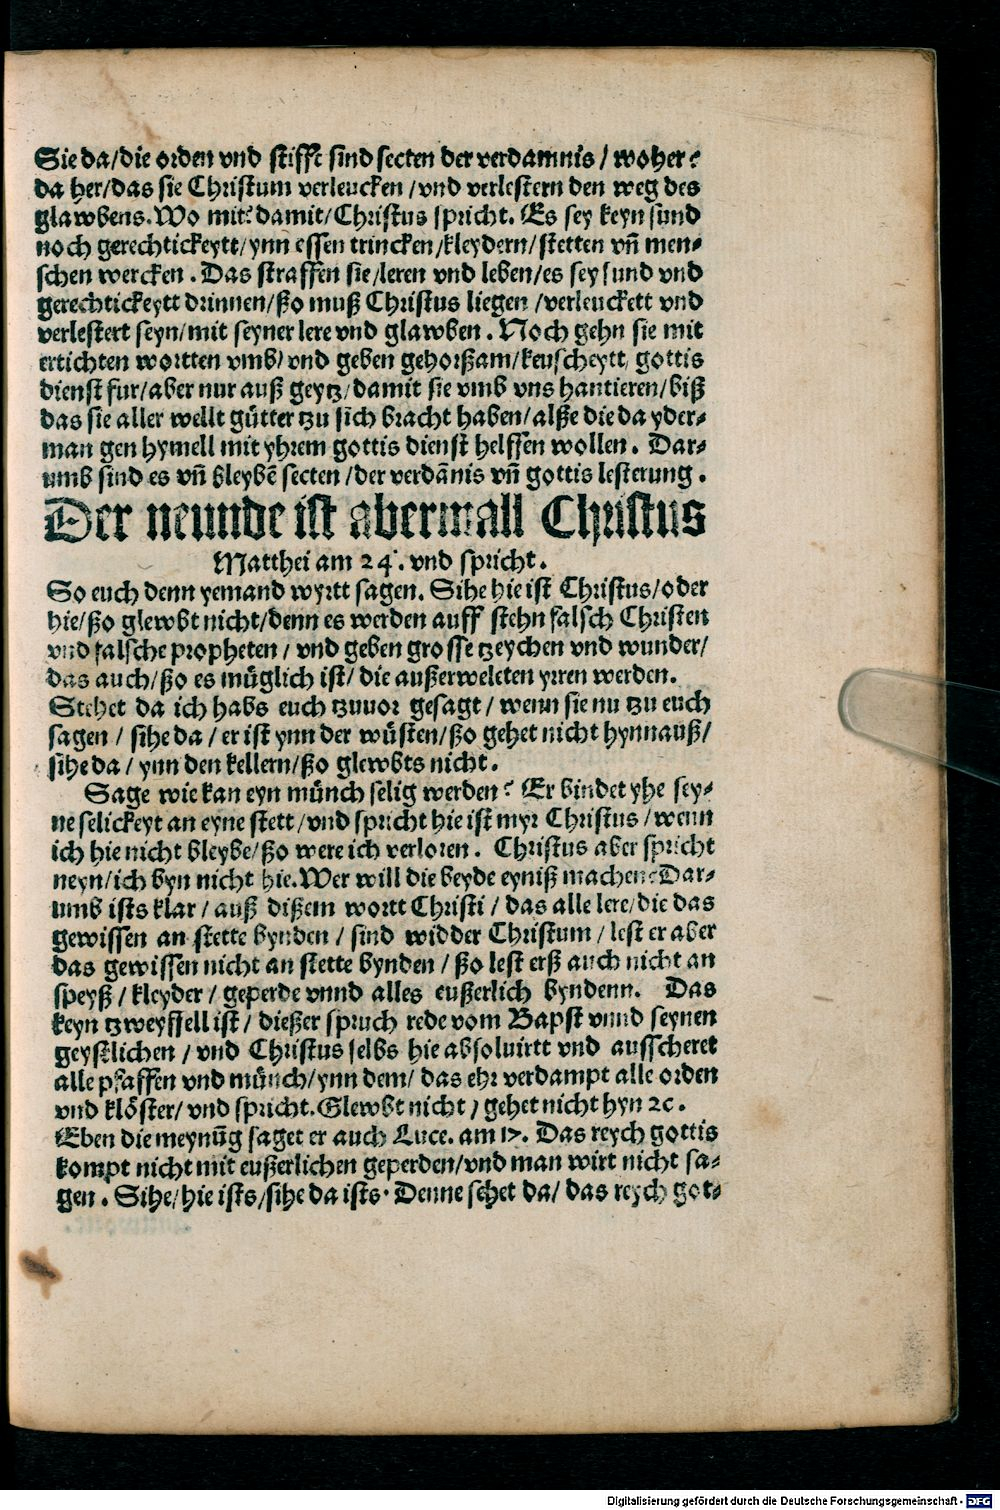 Sie da/die orden vnd stifft sind secten der verdamnis/woher?
da her/das sie Christum verleucken/vnd verlestern den weg des
glawbens. Wo mit? damit/Christus spricht. Es sey keyn sund
noch gerechtickeytt/ynn essen trincken/kleydern/stetten vn̄ men-
schen wercken. Das straffen sie/leren vnd leben/es sey sund vnd
gerechtickeytt drinnen/ßo muß Christus liegen/verleuckett vnd
verlestert seyn/mit seyner lere vnd glawben. Noch gehn sie mit
ertichten wortten vmb/vnd geben gehorßam/keuscheytt/gottis
dienst fur/aber nur auß geytz/damit sie vmb vns hantieren/biß
das sie aller wellt gütter tzu sich bracht haben/alße die da yder-
man gen hymell mit yhrem gottis dienst helffen wollen. Dar-
umb sind es vn̄ bleybē secten/der verdānis vn̄ gottis lesterung.
Der neunde ist abermall Christus
Matthei am 24. vnd spricht.
So euch denn yemand wyrtt sagen. Sihe hie ist Christus/oder
hie/ßo glewbt nicht/denn es werden auff stehn falsch Christen
vnd falsche propheten/vnd geben grosse tzeychen vnd wunder/
das auch/ßo es müglich ist/die außerweleten yrren werden.
Stehet da ich habs euch tzuuor gesagt/wenn sie nu tzu euch
sagen/sihe da/er ist ynn der wüsten/ßo gehet nicht hynnauß/
sihe da/ynn den kellern/ßo glewbts nicht.
Sage wie kan eyn münch selig werden? Er bindet yhe sey-
ne selickeyt an eyne stett/vnd spricht hie ist myr Christus/wenn
ich hie nicht bleybe/ßo were ich verloren. Christus aber spricht
neyn/ich byn nicht hie. Wer will die beyde eyniß machen? Dar-
umb ists klar/auß dißem wortt Christi/das alle lere/die das
gewissen an stette bynden/sind widder Christum/lest er aber
das gewissen nicht an stette bynden/ßo lest erß auch nicht an
speyß/kleyder/geperde vnnd alles eußerlich byndenn. Das
keyn tzweyffell ist/dießer spruch rede vom Bapst vnnd seynen
geystlichen/vnd Christus selbs hie absoluirtt vnd ausscheret
alle pfaffen vnd münch/ynn dem/das ehr verdampt alle orden
vnd klöster/vnd spricht. Glewbt nicht/gehet nicht hyn ꝛc.
Eben die meynūg saget er auch Luce. am 17. Das reych gottis
kompt nicht mit eußerlichen geperden/vnd man wirt nicht sa-
gen. Sihe/hie ists/sihe da ists. Denne sehet da/das reych got-
Digitalisierung gefördert durch die Deutsche Forschungsgemeinschaft - DFG